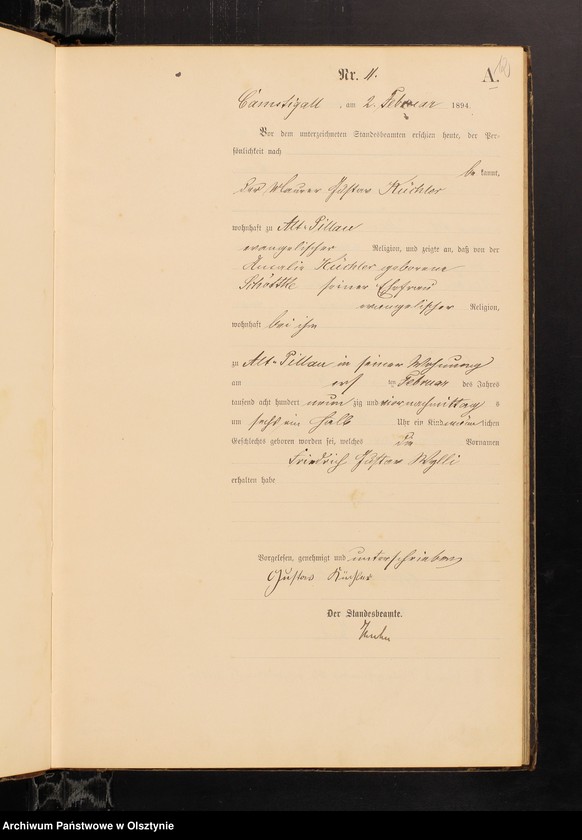 Nr. 11.
A.
Camstigall, am 2. Februar 1894
Vor dem unterzeichneten Standesbeamten erschien heute, der Per-
sönlichkeit nach
be kannt,
der Maurer Gustav Küchler
wohnhaft zu Alt-Pillau
evangelischer Religion, und zeigte an, daß von der
Amalie Küchler geborene
seiner Ehefrau
evangelischer Religion,
wohnhaft bei ihm
zu Alt-Pillau in seiner Wohnung
am ten Februar des Jahres
tausend acht hundert neun zig und vier nachmittag s
um sechs ein halb Uhr ein Kind männ lichen
Geschlechts geboren worden sei, welches die Vornamen
Friedrich Gustav Wylli
erhalten habe
Vorgelesen, genehmigt und unterschrieben
Gustav Küchler
Der Standesbeamte.
Archiwum Państwowe w Olsztynie